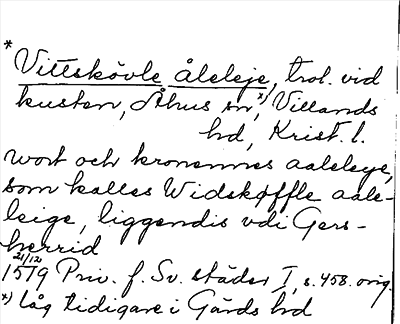 * Vittskövle åleleje, trol. vid
kusten, Åhus sn,*) Villands
hd, Krist. l.
wort och kronennes aaleleye,
som kalles Widskøffle aale-
leige, liggendis vdi Gers-
herrid
21/12
1519 Priv. f. Sv. städer I, s. 458. orig.
*) Låg tidigare i Gärds hd